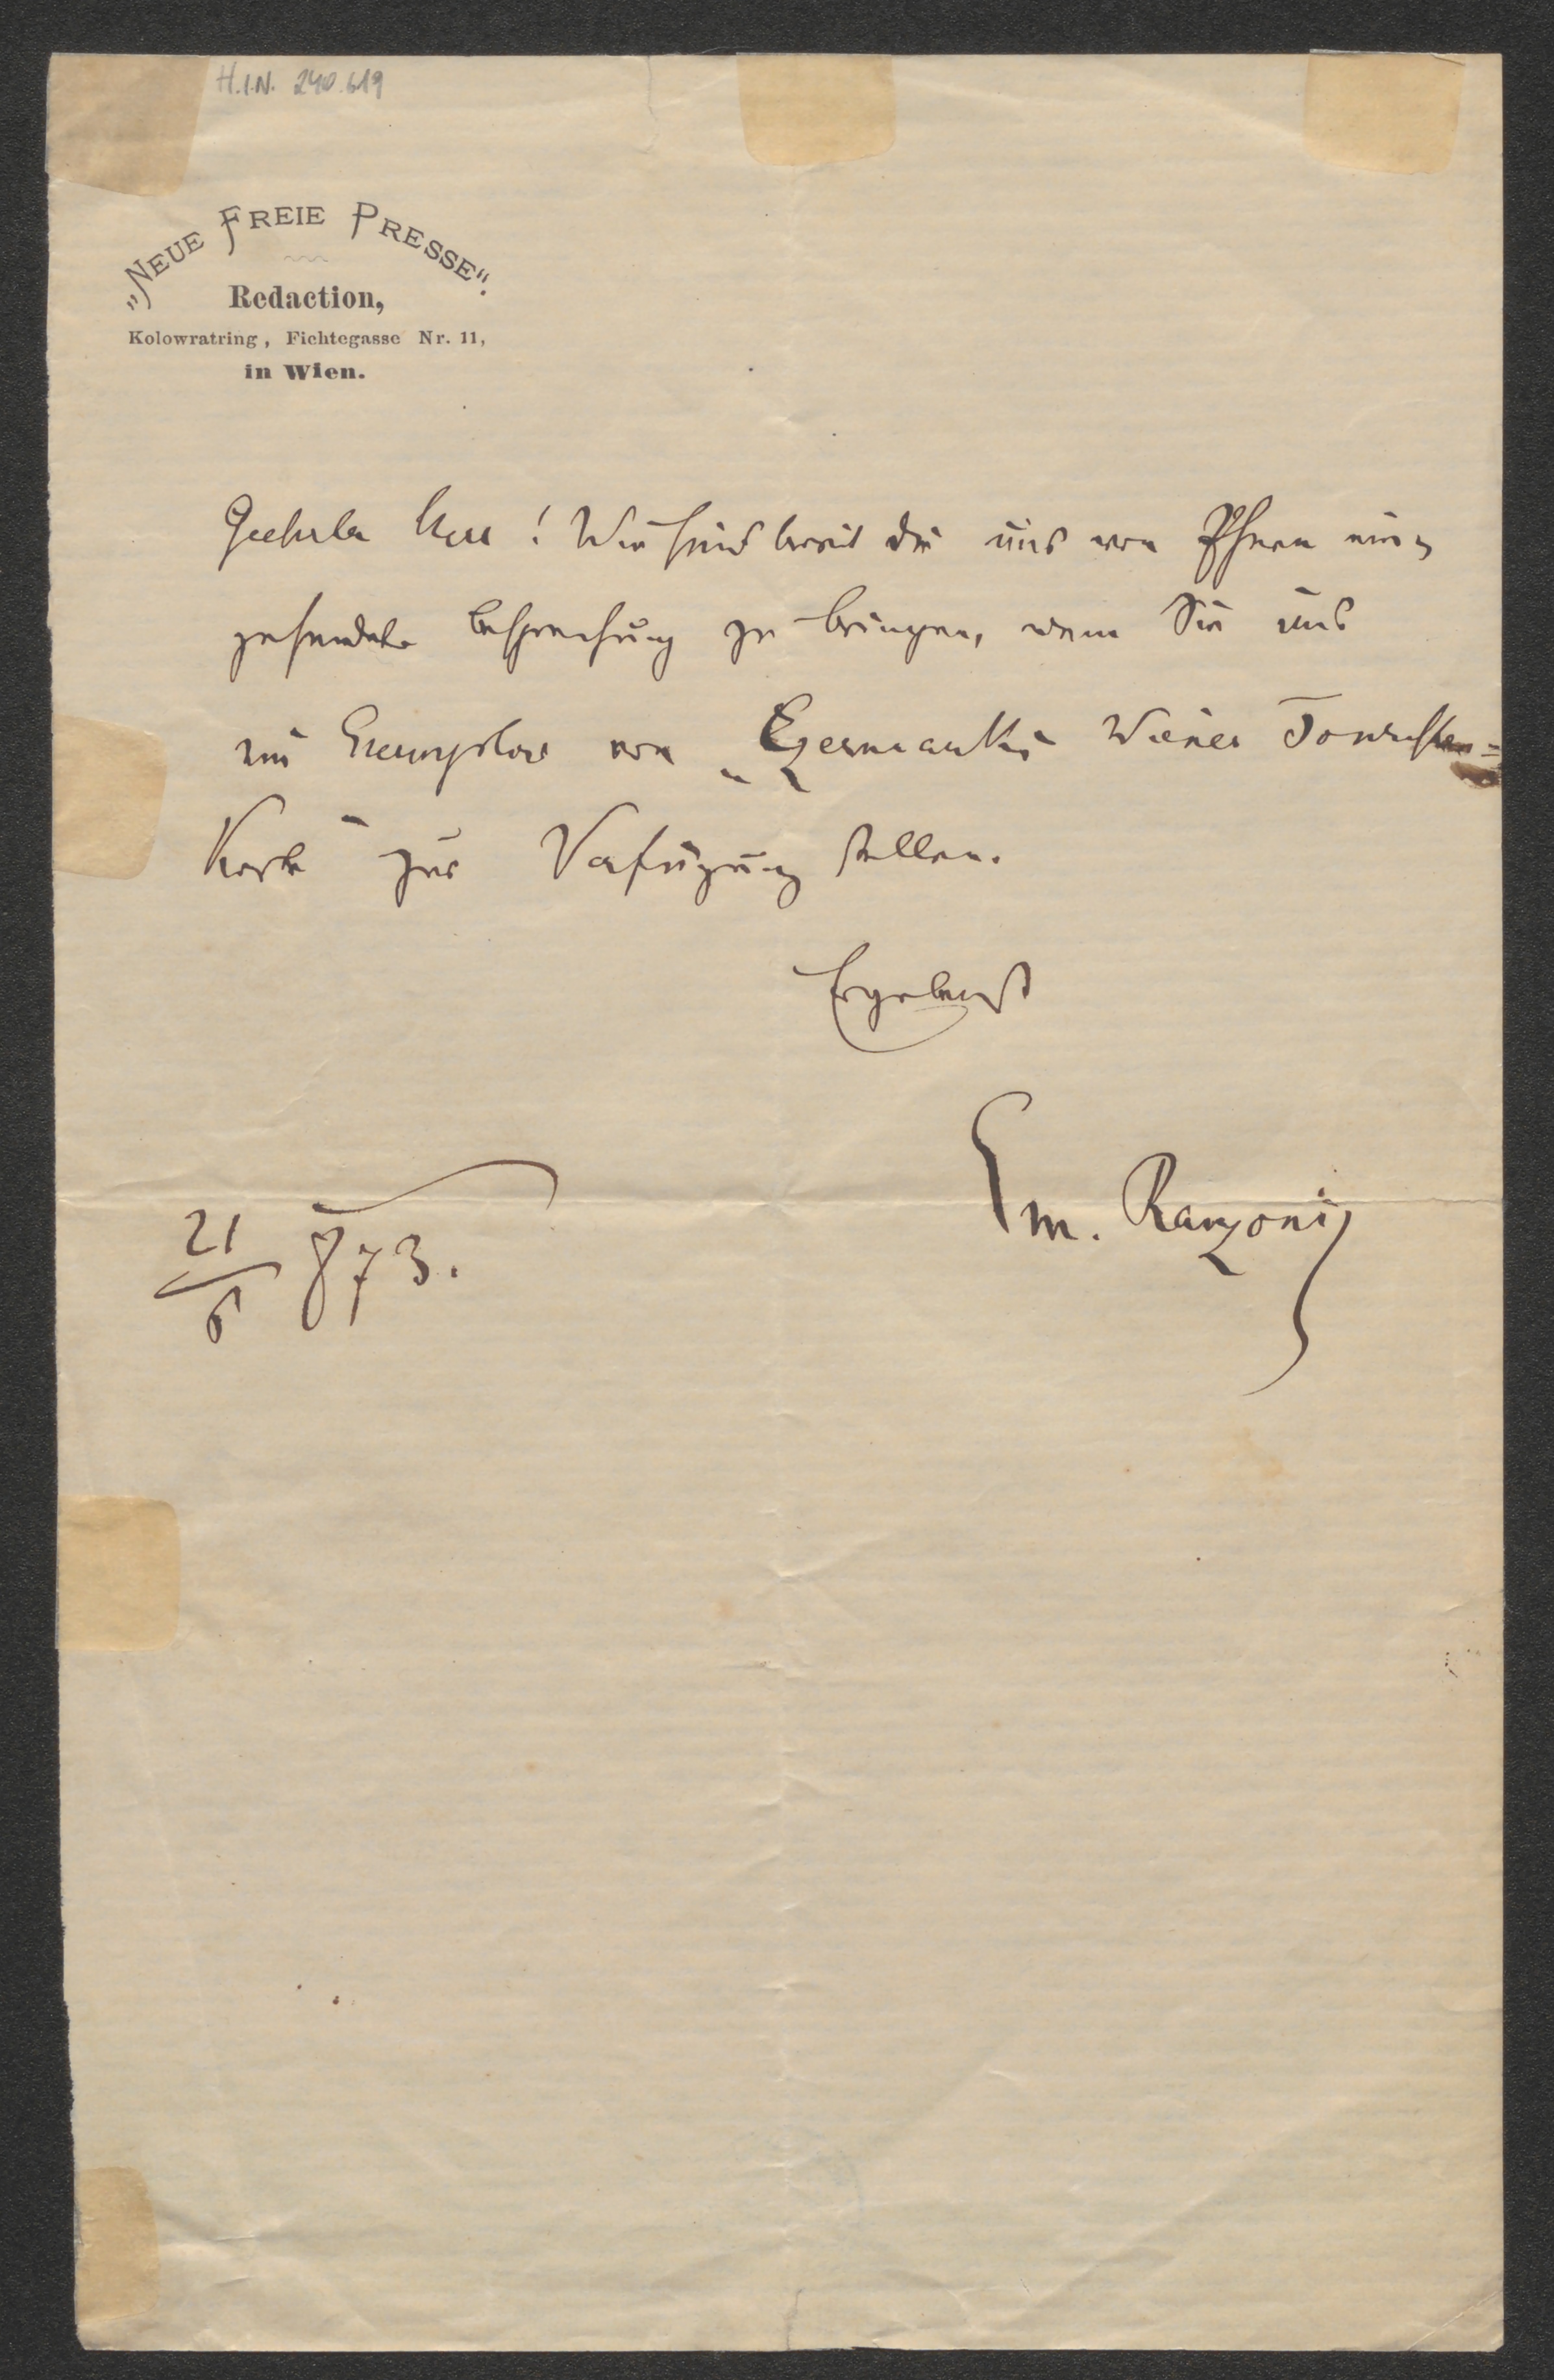 H.I.N. 240.619
„NEUE FREIE PRESSE".
Redaction,
Kolowratring, Fichtegasse Nr. 11,
in Wien.
Geehrter Herr! Wir sind bereit die uns von Ihnen ein=
gesendete Besprechung zu bringen, wenn Sie uns
ein Exemplar von „Czermak's Wiener Touristen=
Karte" zur Verfügung stellen.
Ergebenst
Em. Ranzoni
21/6 873.